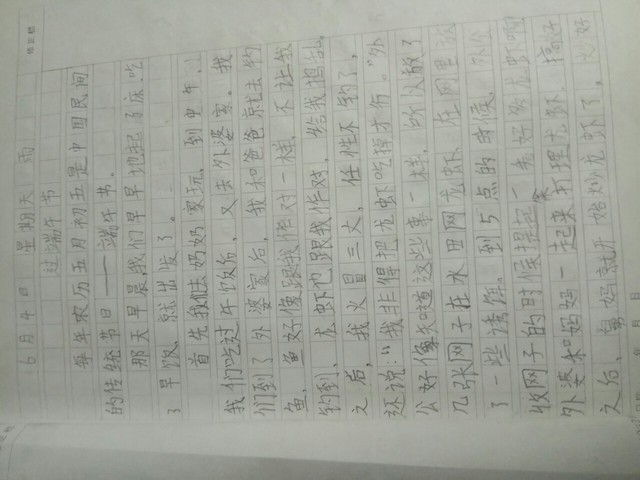 6月4日 星期天 雨
过端午节
每年农历五月初五是中国民间
的传统节日——端午节。
那天早晨我们早早地起了床,吃
了早饭,就出发了。
首先我们去奶奶家玩,到中午,
我们吃过午饭后,又去外婆家。我
们到了外婆家后,我和爸爸就去钓
鱼,鱼好像跟我作对一样,不让我
钓到,龙虾也跟我作对,给我捣乱,
之后,我火冒三丈,任性不钓了,
还说:“我非得把龙虾吃掉才行。”外
公好像知道这些事一样,所以放了
几张网子在水田网龙虾,在网里放
了一些诱饵。到5点的时候,外公
收网子的时候提起一看好多龙虾啊
外婆和妈妈一起来打理龙虾,搞好
之后,舅妈就开始炒龙虾了,炒好
月 日